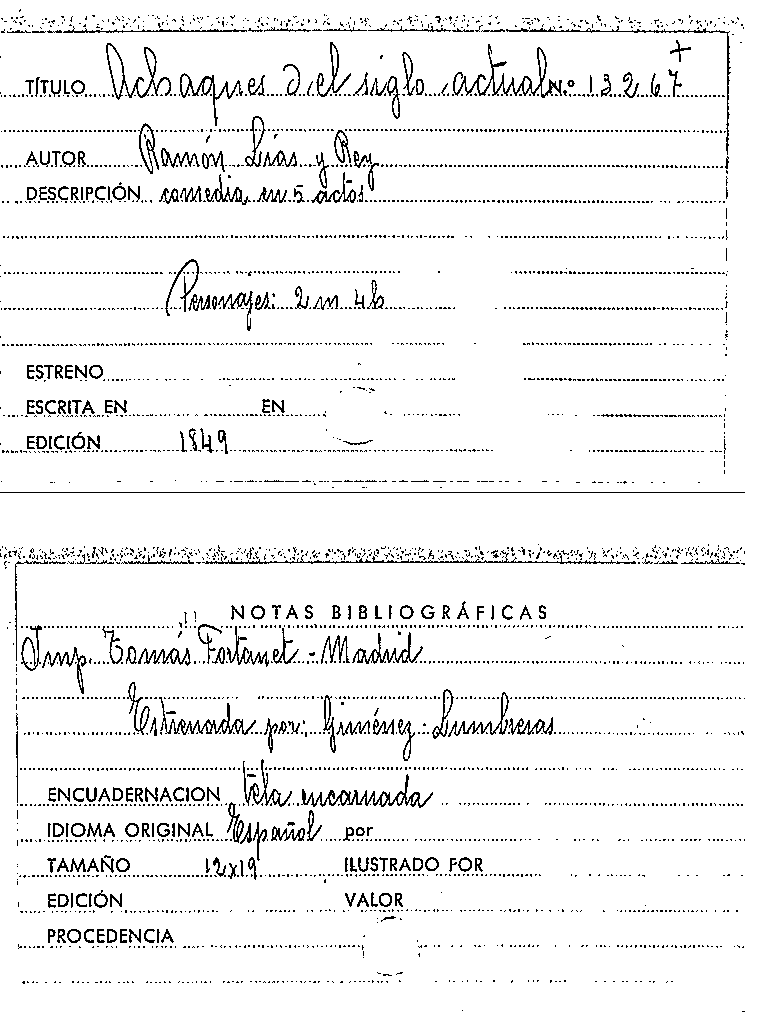 TÍTULO Achaques del siglo actual N.º 13267
AUTOR Ramón Lías y Rey
DESCRIPCIÓN comedia en 5 actos
Personajes: 2 m 4 h
ESTRENO
ESCRITA EN EN
EDICIÓN 1849
NOTAS BIBLIOGRÁFICAS
Imp. Tomás Fortanet - Madrid
Estrenada por: Giménez - Lumbreras
ENCUADERNACION tela encarnada
IDIOMA ORIGINAL Español por
TAMAÑO 12x19 ILUSTRADO FOR
EDICIÓN VALOR
PROCEDENCIA